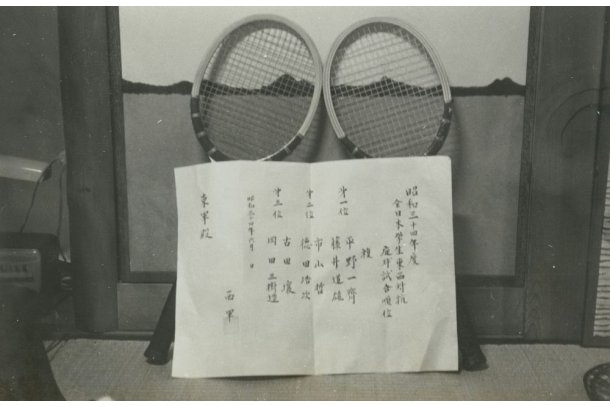 昭和三十四年度
全日本学生東西対抗
庭球試合順位
複
第一位 平野一斉
藤井道雄
第二位 市山哲
徳田浩次
第三位 古田壌
岡田三樹造
昭和三十四年六月 日
西軍
東軍殿